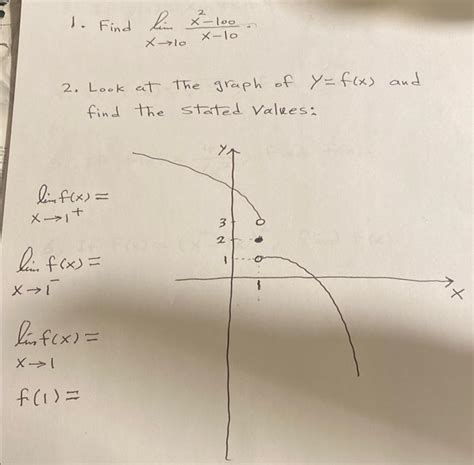 1. Find lim x→10 x²-100 / x-10 .
2. Look at the graph of y=f(x) and
find the stated values:
y
lim f(x) =
x→1⁺
3
2
lim f(x) =
x→1⁻
1
1
x
lim f(x) =
x→1
f(1) =